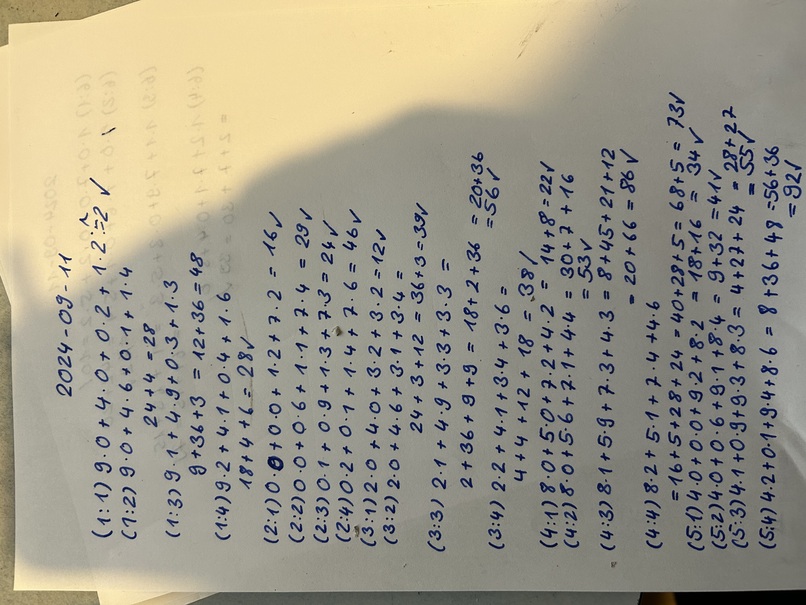 2024-09-11
(1:1) 9·0 + 4·0 + 0·2 + 1·2 = 2 ✓
(1:2) 9·0 + 4·6 + 0·1 + 1·4
24 + 4 = 28
(1:3) 9·1 + 4·9 + 0·3 + 1·3
9 + 36 + 3 = 12 + 36 = 48
(1:4) 9·2 + 4·1 + 0·4 + 1·6
18 + 4 + 6 = 28 ✓
(2:1) 0·0 + 0·0 + 1·2 + 7·2 = 16 ✓
(2:2) 0·0 + 0·6 + 1·1 + 7·4 = 29 ✓
(2:3) 0·1 + 0·9 + 1·3 + 7·3 = 24 ✓
(2:4) 0·2 + 0·1 + 1·4 + 7·6 = 46 ✓
(3:1) 2·0 + 4·0 + 3·2 + 3·2 = 12 ✓
(3:2) 2·0 + 4·6 + 3·1 + 3·4 =
24 + 3 + 12 = 36 + 3 = 39 ✓
(3:3) 2·1 + 4·9 + 3·3 + 3·3 =
2 + 36 + 9 + 9 = 18 + 2 + 36 = 20 + 36
= 56 ✓
(3:4) 2·2 + 4·1 + 3·4 + 3·6 =
4 + 4 + 12 + 18 = 38 ✓
(4:1) 8·0 + 5·0 + 7·2 + 4·2 = 14 + 8 = 22 ✓
(4:2) 8·0 + 5·6 + 7·1 + 4·4 = 30 + 7 + 16
= 53 ✓
(4:3) 8·1 + 5·9 + 7·3 + 4·3 = 8 + 45 + 21 + 12
= 20 + 66 = 86 ✓
(4:4) 8·2 + 5·1 + 7·4 + 4·6
= 16 + 5 + 28 + 24 = 40 + 28 + 5 = 68 + 5 = 73 ✓
(5:1) 4·0 + 0·0 + 9·2 + 8·2 = 18 + 16 = 34 ✓
(5:2) 4·0 + 0·6 + 9·1 + 8·4 = 9 + 32 = 41 ✓
(5:3) 4·1 + 0·9 + 9·3 + 8·3 = 4 + 27 + 24 = 28 + 27
= 55 ✓
(5:4) 4·2 + 0·1 + 9·4 + 8·6 = 8 + 36 + 48 = 56 + 36
= 92 ✓